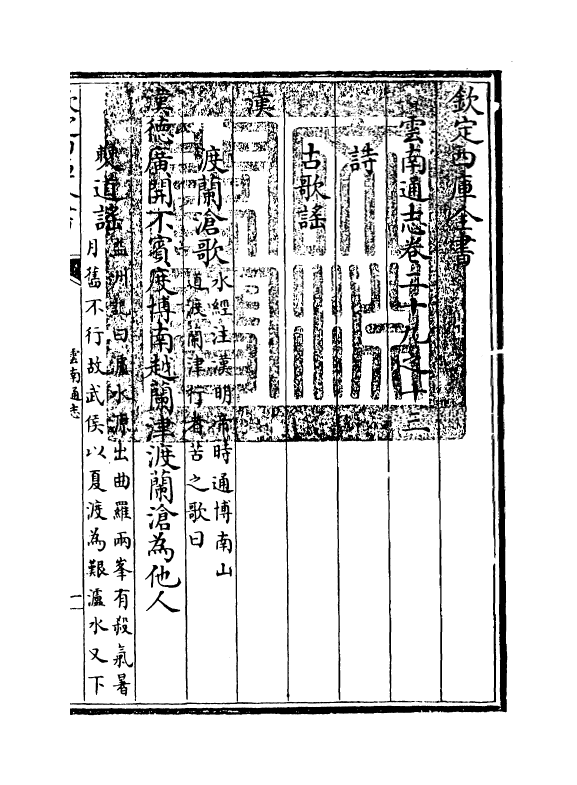 欽定四庫全書
雲南通志卷二十九之十三
詩
古歌謠
漢
渡蘭滄歌 水經注漢明帝時通博南山
道渡蘭津行者苦之歌曰
漢德廣開不賓度博南越蘭津渡蘭滄為他人
僰道謠 益州記曰瀘水源出曲羅兩峯有殺氣暑
月舊不行故武侯以夏渡為艱瀘水又下
雲南通志
一